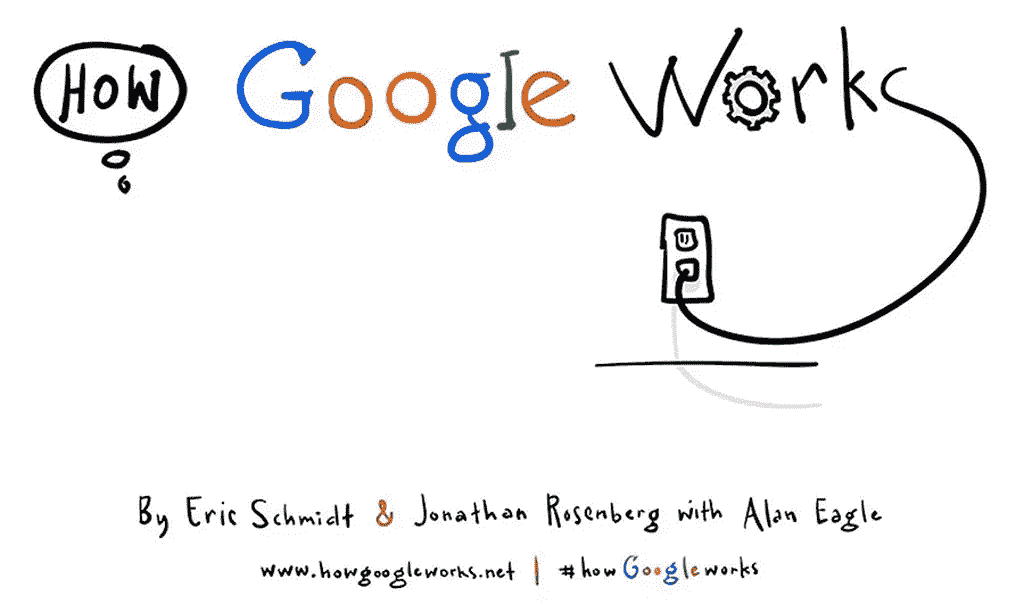 How Google Works
By Eric Schmidt & Jonathan Rosenberg with Alan Eagle
www.howgoogleworks.net | #howGoogleworks